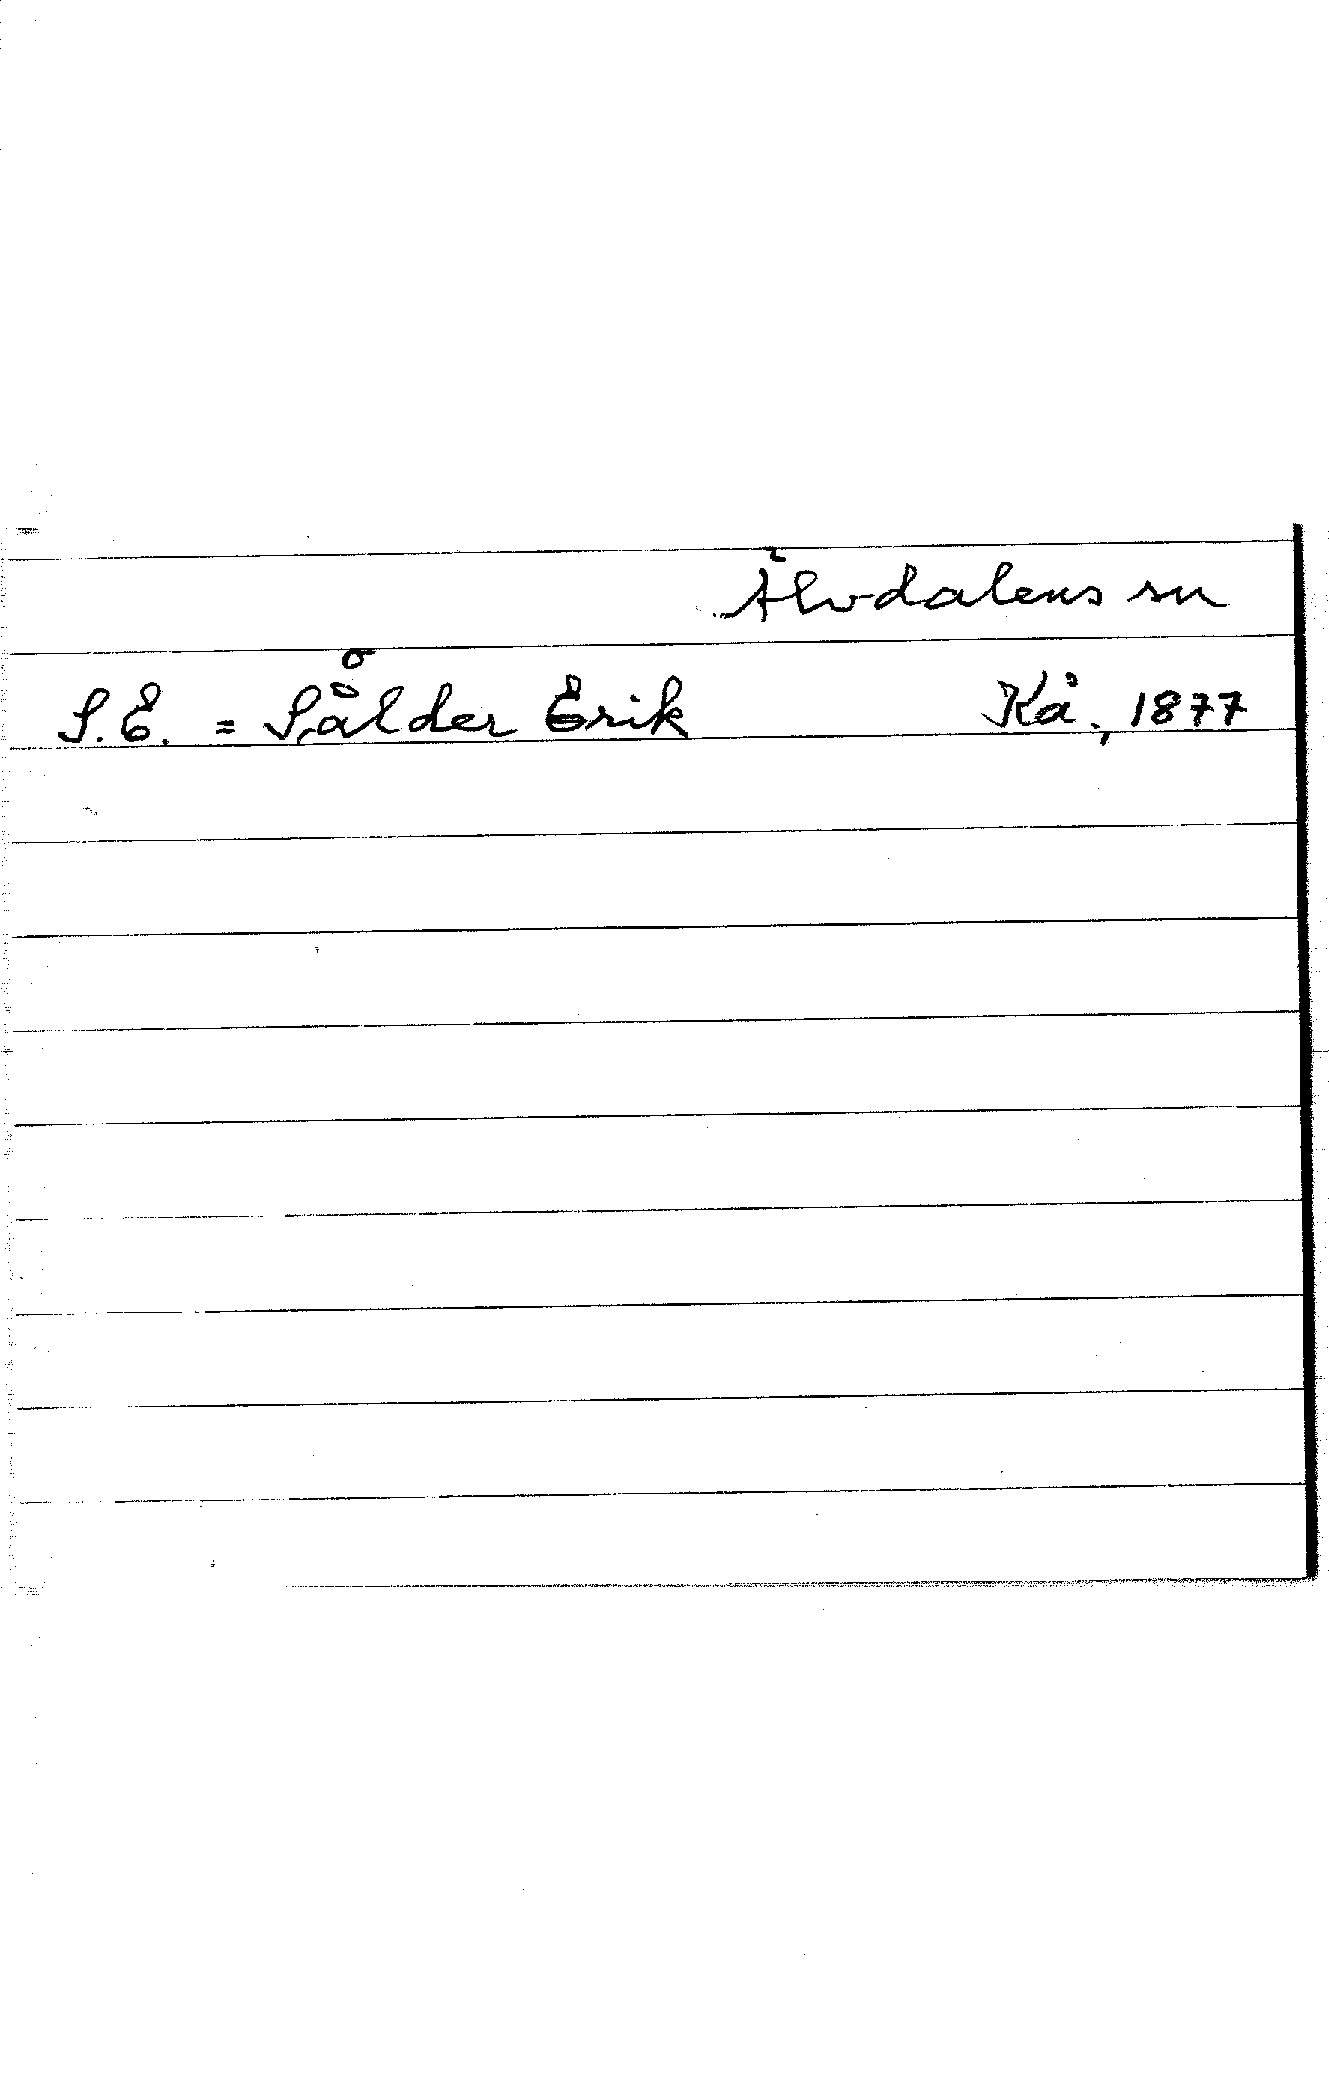 Älvdalens sn
S.E. = Sålder Erik Kå., 1877